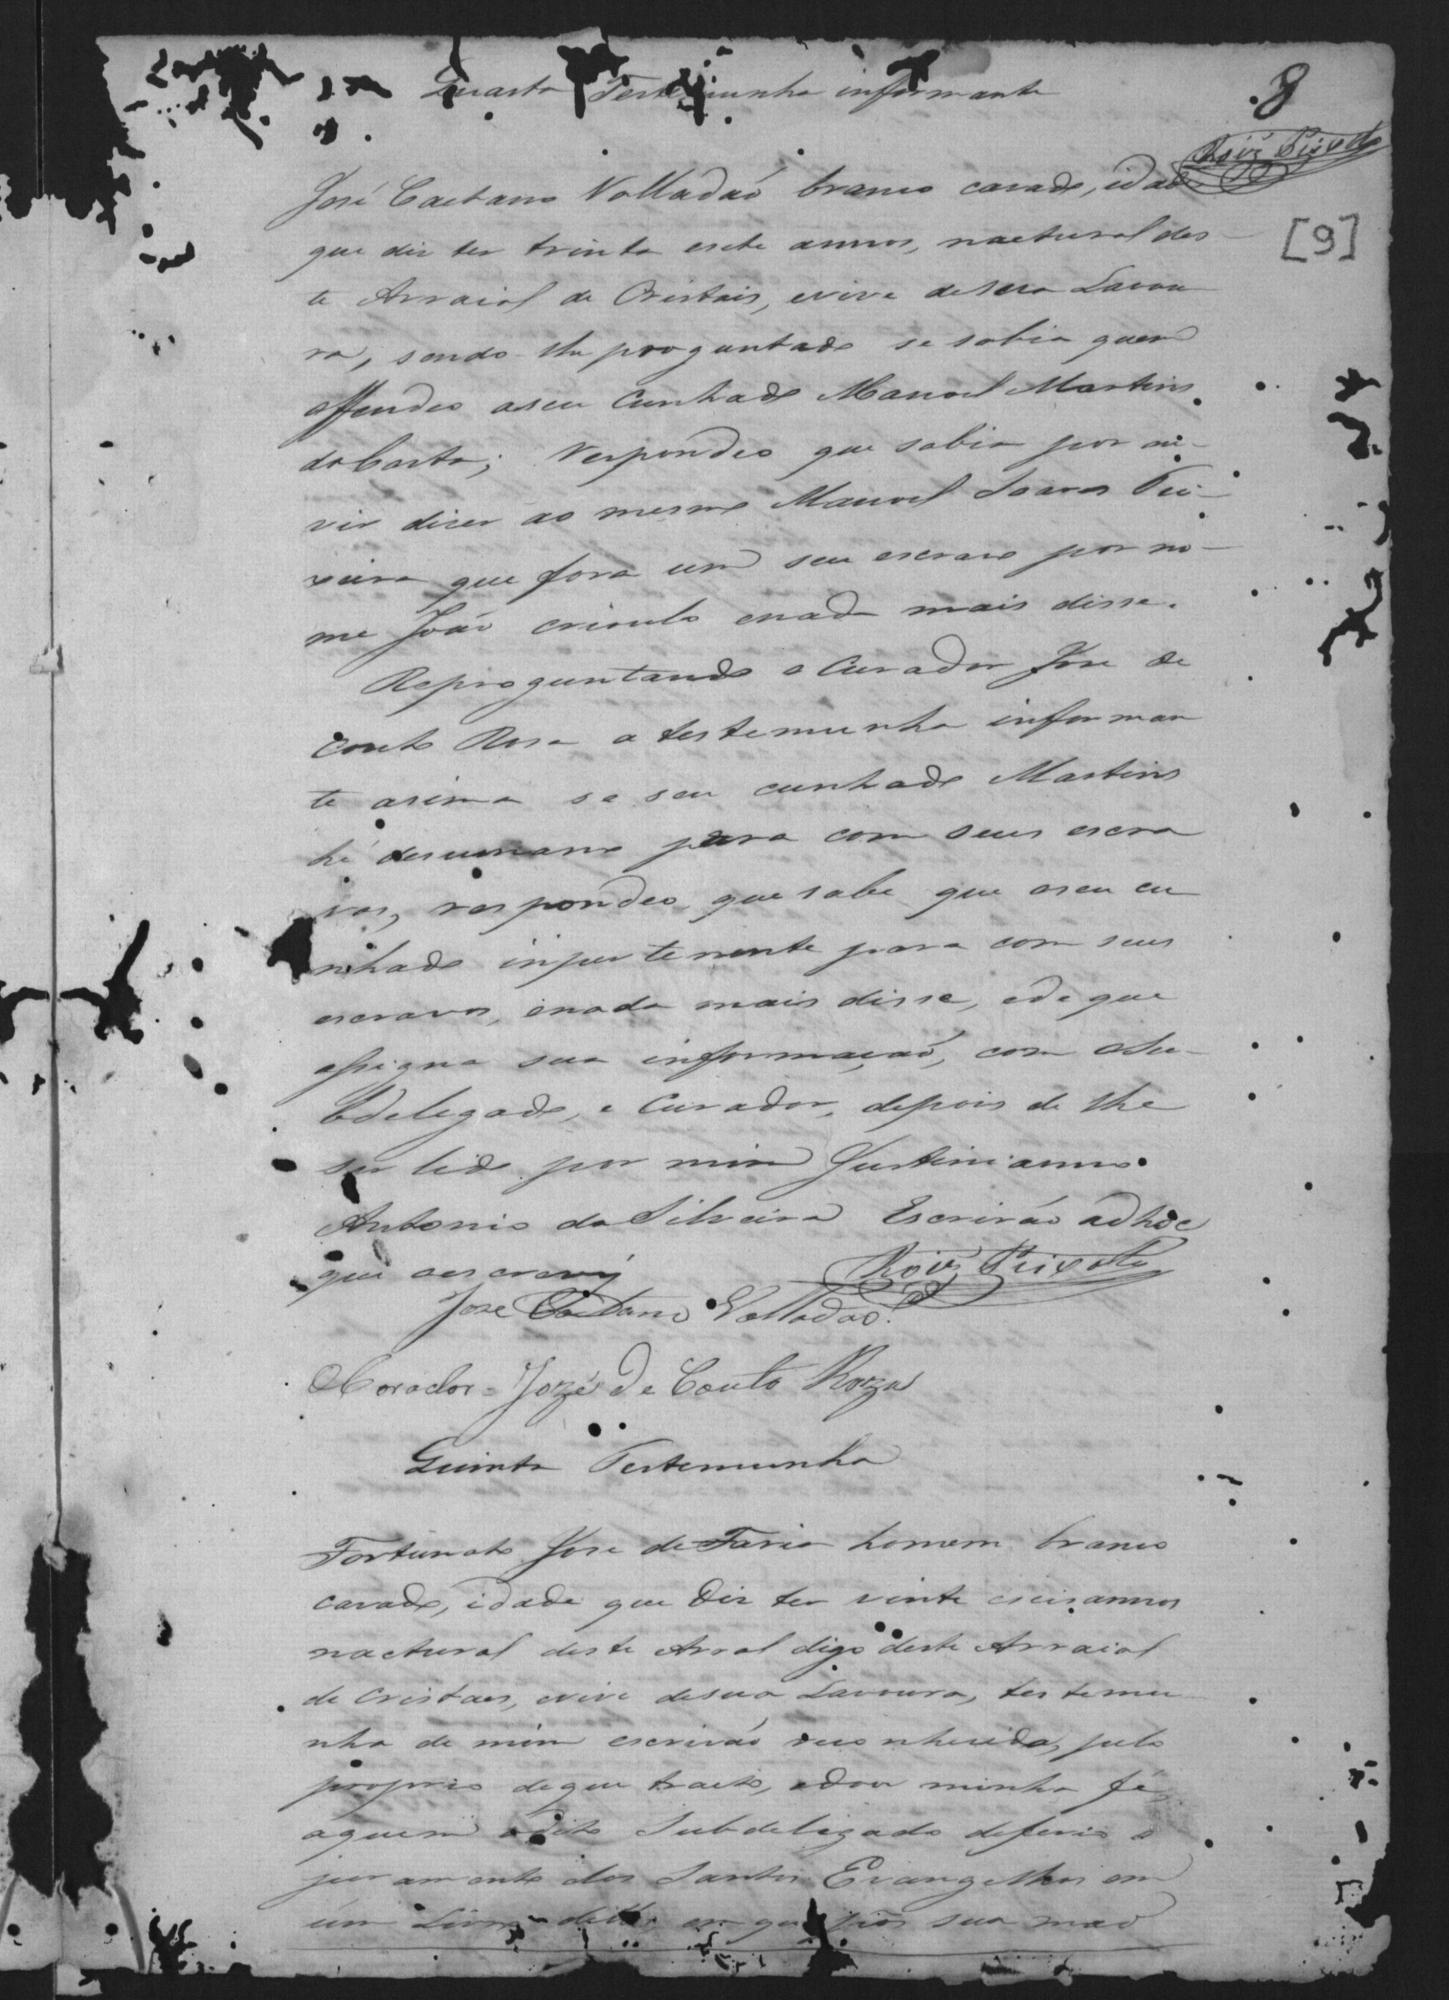 8
Quarta Testemunha informante
Roiz Peixoto
[9]
José Caetano Valladaõ branco casado, idade
que diz ter trinta esete annos, nactural des-
te Arraial de Cristais, evive desua Lavou
ra, sendo-lhe proguntado se sabia quem
offendeo aseu Cunhado Manoel Martins
daCosta; respondeo que sabia por ou-
vir diser ao mesmo Manoel Soares Pei-
xeira que fora um seu escravo por no-
me Joaõ crioulo enada mais disse.
Reproguntando o Curador Jose de
Couto Rosa a testemunha informan
te asima se seu cunhado Martins
hé desumano para com seus escra
vos, respondeo, que sabe que oseu cu
nhado inpertenente para com seus
escravos, enada mais disse, ede que
assigna sua informaçaõ, com oSu-
bdelegado, e Curador, depois de lhe
ser lido por mim Justinianno
Antonio da Silveira Escrivaõ adhoc
que oescrevy
Roiz Peixoto
Jose Caetano Valladao.
OCorador = Jozé de Couto Roza
Quinta Testemunha
Fortunato Jose de Faria homem branco
casado, idade que diz ter vinte eseis annos
nactural deste Arral digo deste Arraial
de Cristaes, evive desua Lavoura, testemu
nha de mim escrivaõ reconhesida, pelo
proprio dequi tracto, edou minha fé,
aquem odito Subdelegado deferio o
juramento dos Santos Evangelhos em
um Livro delles em que pôs sua maõ